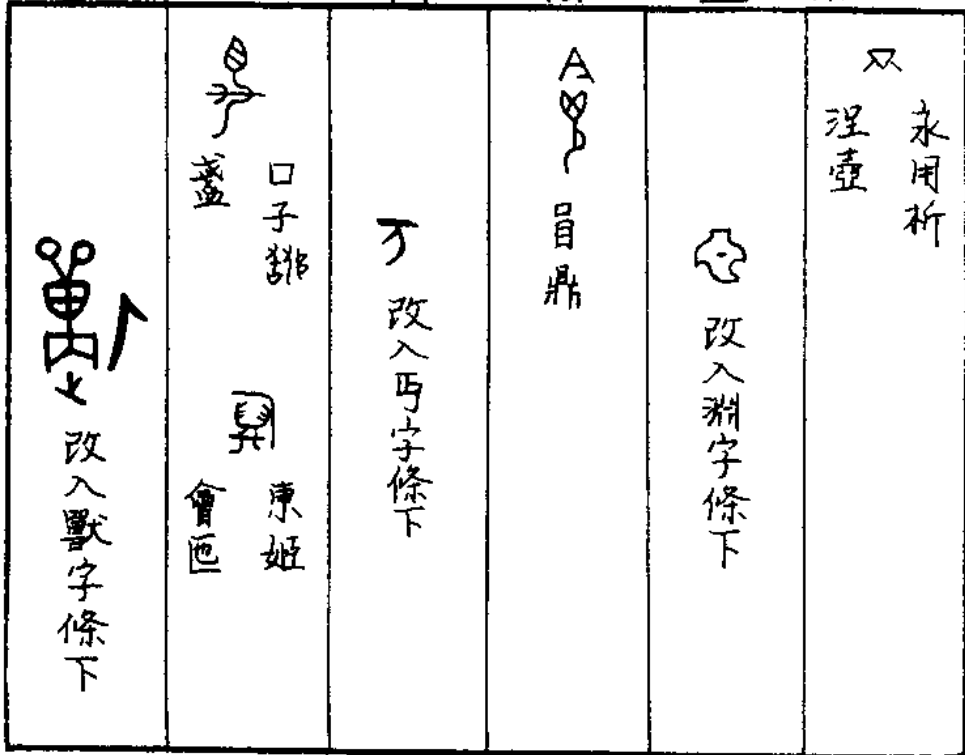 永用析
涅壺
改入淵字條下
員鼎
改入丏字條下
口子
盞
東姬
會匜
改入獸字條下